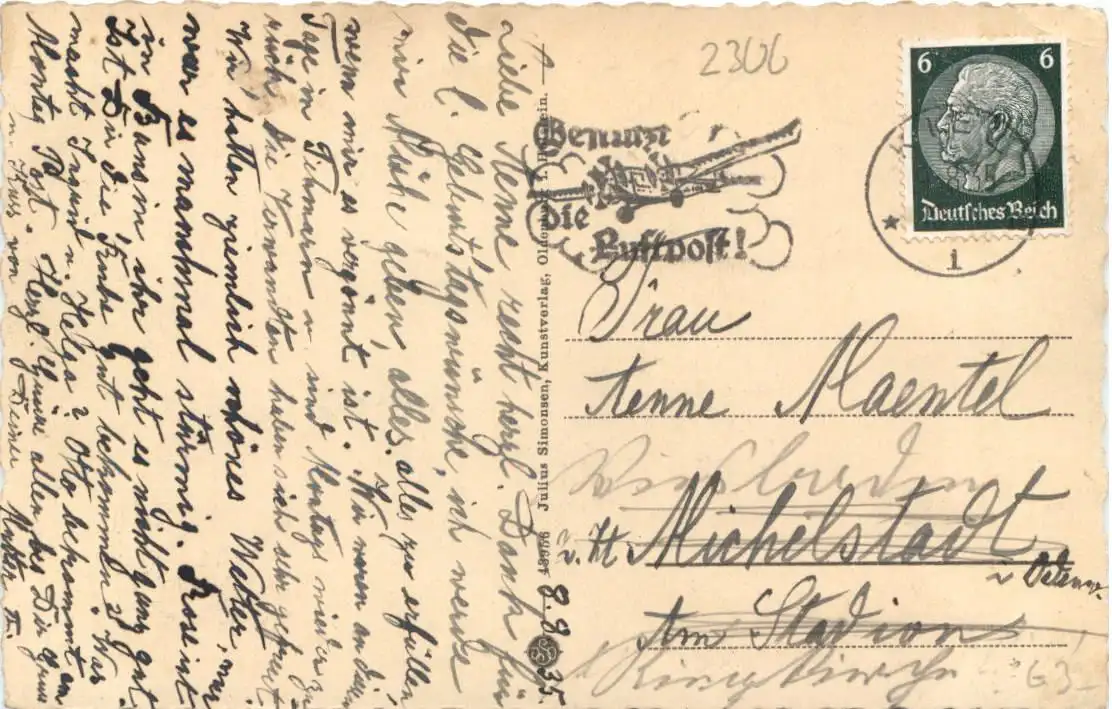 8.8.35.
Liebe Aenne, recht herzl. Dank für
die l. Geburtstagswünsche, ich werde
mir Mühe geben, alles, alles, alles zu erfüllen,
wenn mir es vergönnt ist. Wir waren an
Tage in und Montags wieder zu-
rück, die Verwandten haben sich sehr gefreut
Wir hatten ziemlich schönes Wetter, nur
war es manchmal stürmig. ist
in ihr geht es nicht ganz gut
Ist Dir die gut bekommen? Was
macht Ingrid u. Helga? Otto bekommt am
Montag Post. Herzl. Grüße allen, bes. Dir
u. von Deiner Mutter
43966 Julius Simonsen, Kunstverlag, Oldenburg i. Holstein.
2306
Benutzt
die
Luftpost!
6 6
Deutsches Reich
* i
Frau
Aenne Maentel
Wiesbaden
z. Zt. Michelstadt
i. Odenw.
Am Stadion